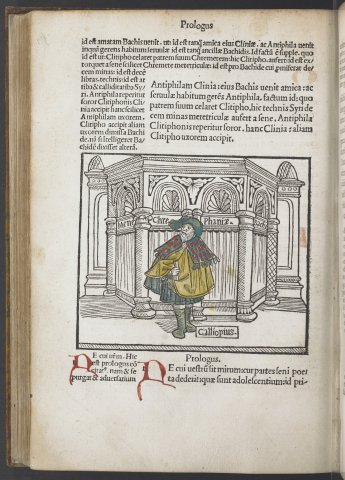 Prologus
id est amatam Bachis uenit. ut id est tanq̃ amica eius Cliniæ. ac Antiphila uenit
inquit gerens habitum seruulæ id est tanq̃ ancillæ Bachidis. Id factũ
id est ut Clitipho celaret patrem suum Chremetem: hic Clitipho. aufert id est ex
torquet a sene scilicet Chremete meretriculæ id est pro Bachide
cem minas: id est decẽ
libras. technis id est ar
tibus & calliditatibus Sy
ri. Antiphila reperitur
soror Clitiphonis Cli
nia accipit hanc scilicet
Antiphilam uxorem.
Clitipho accipit aliam
uxorem
de. ne si intelligeret Ba
chidẽ duxisset alterã.
Antiphilam Clinia: eius Bachis uenit amica: ac
seruulæ habitum gerẽs Antiphila. factum id: quo
patrem suum celaret Clitipho. hic technis Syri de
cem minas meretriculæ aufert a sene. Antiphila
Clitiphonis reperitur soror. hanc Clinia: aliam
Clitipho uxorem accipit.
Chre
Phaniæ
Calliopius
Prologus.
E cui urm̃. Hic
est prologus
nam & se
purgat & aduersarium
E cui uestrũ sit mirum: cur partes seni poe
ta dederit: quæ sunt adolescentium: id pri-